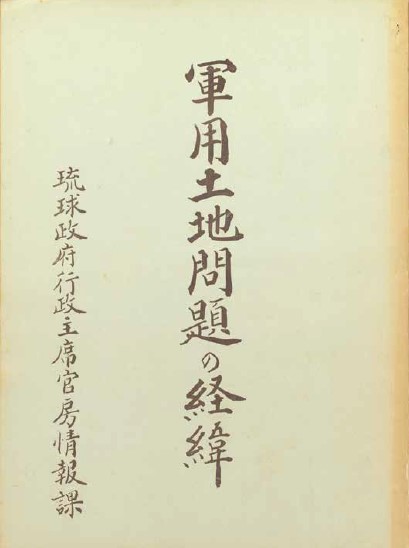 軍用土地問題の経緯
琉球政府行政主席官房情報課